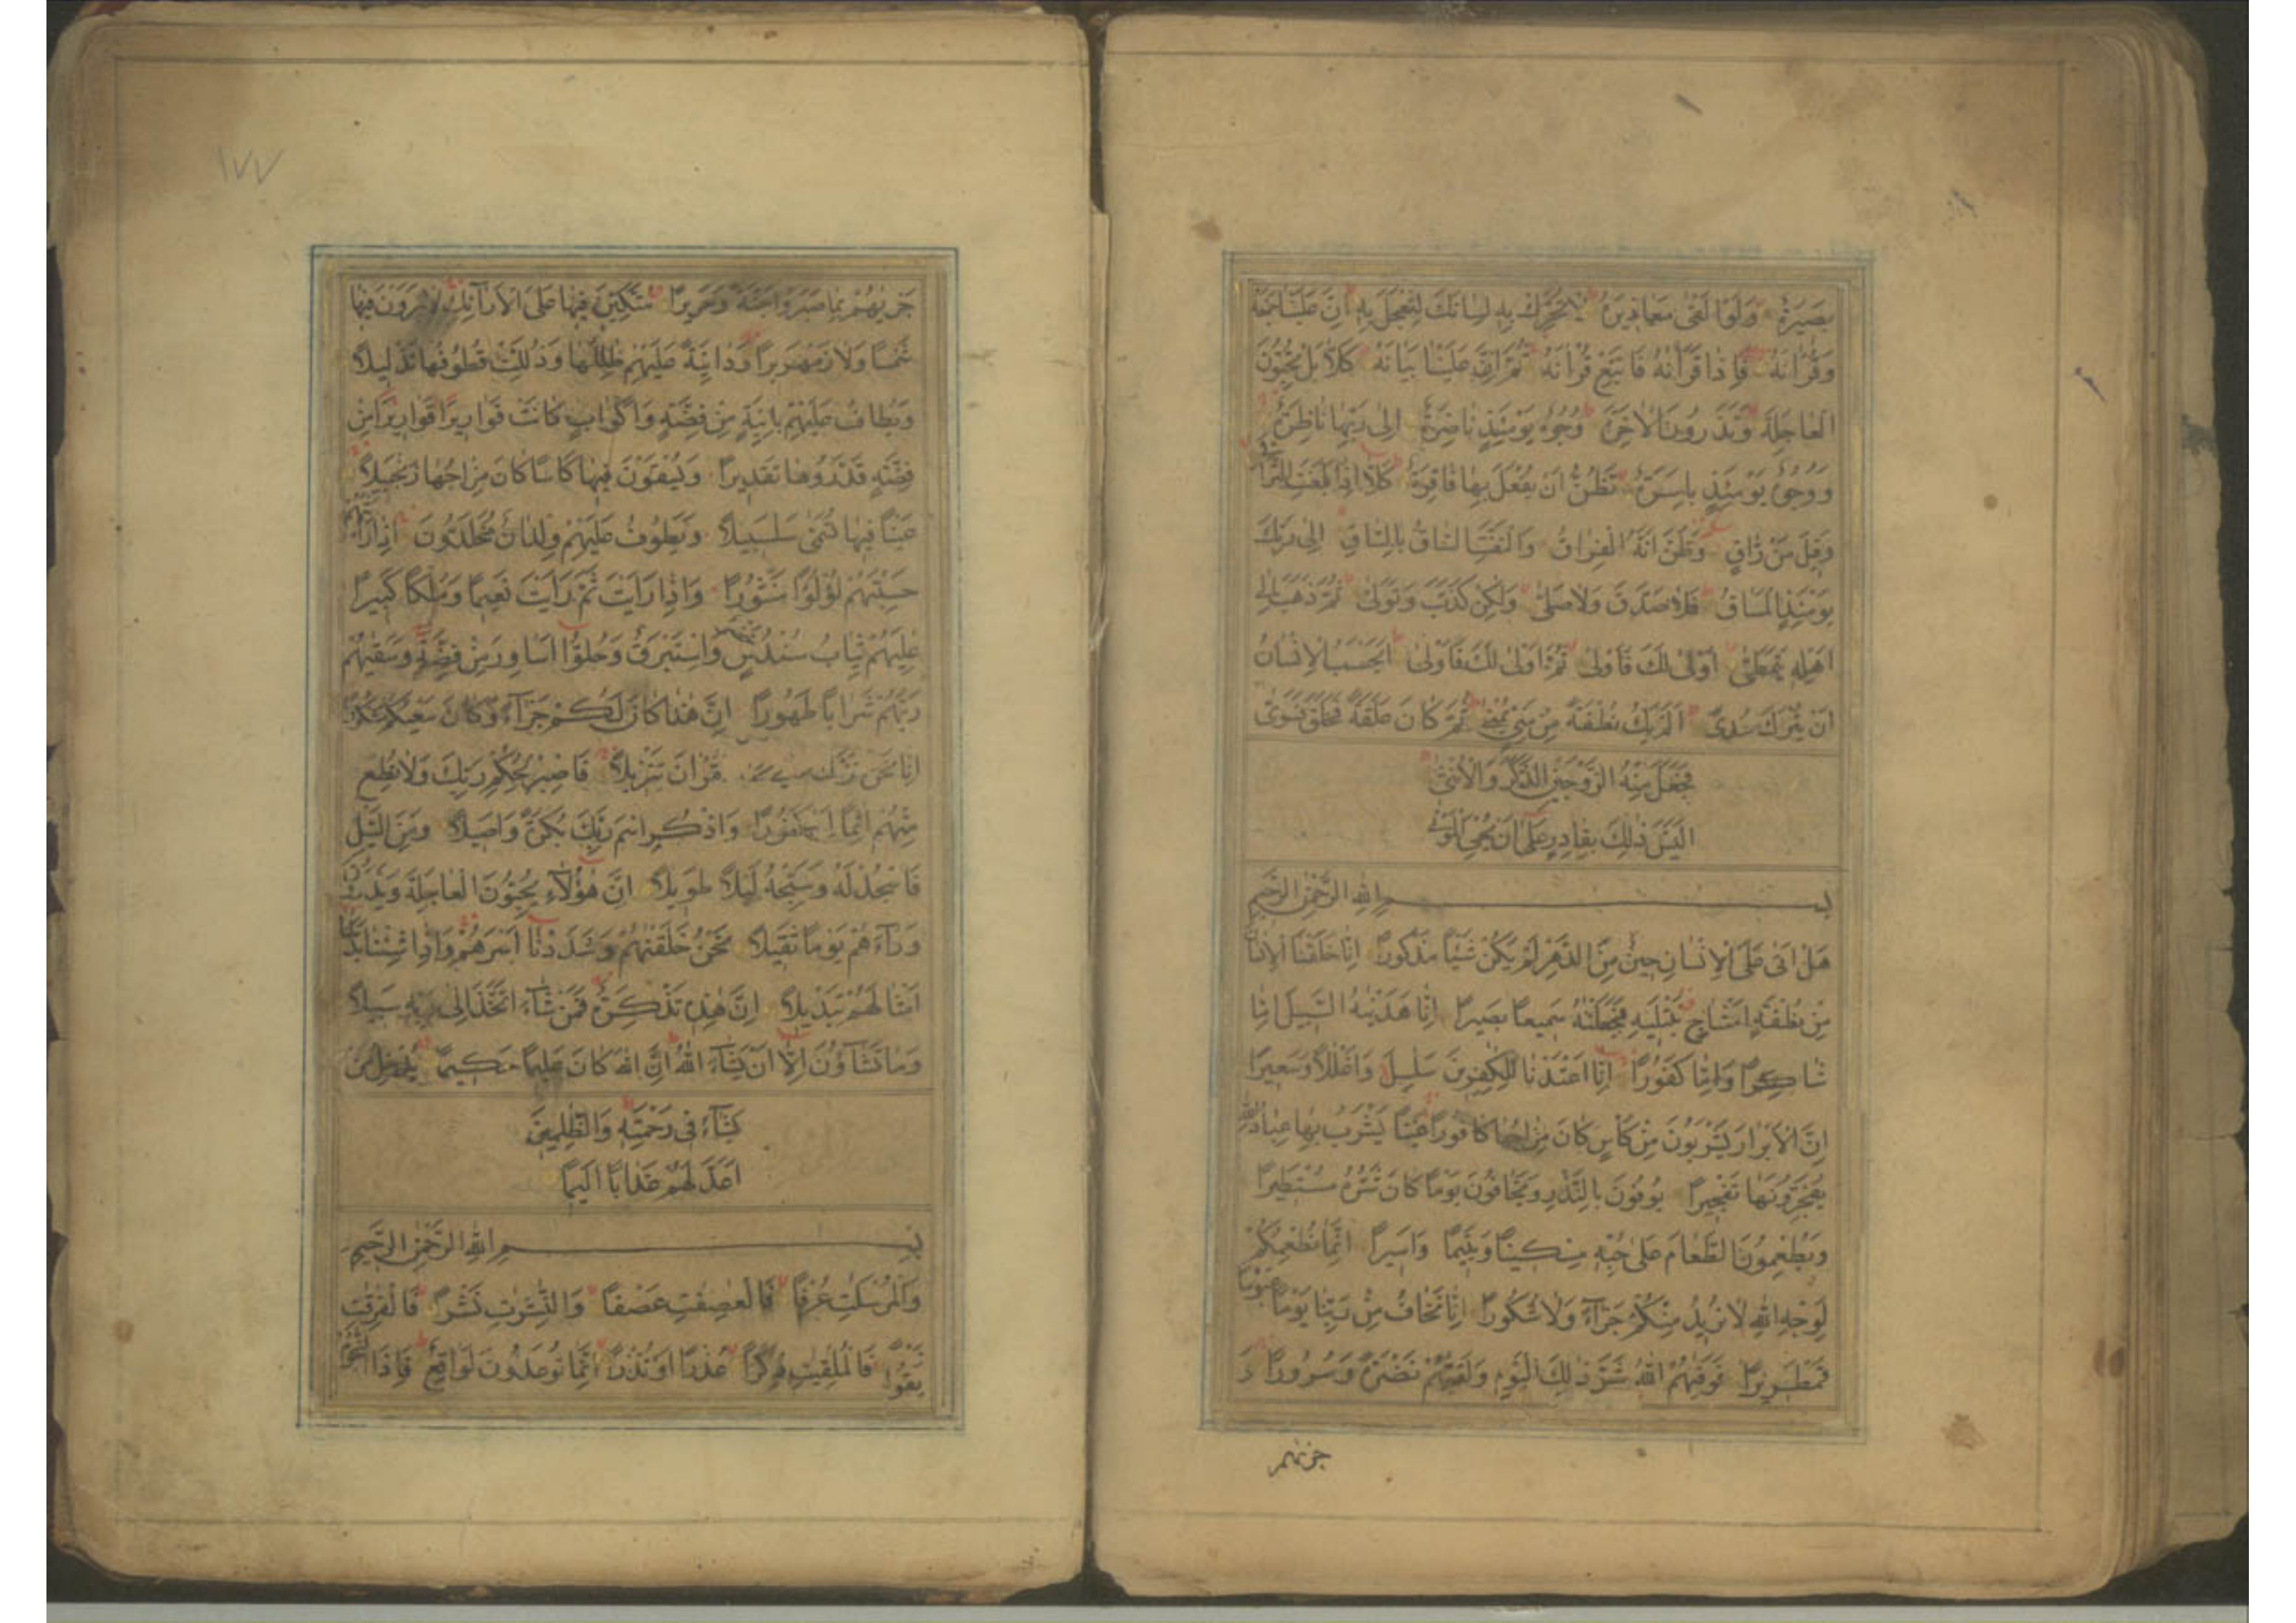 بَصِيرَةٌ وَلَوْ اَلْقٰى مَعَاذِيرَهُ لَا تُحَرِّكْ بِهِ لِسَانَكَ لِتَعْجَلَ بِهِ اِنَّ عَلَيْنَا جَمْعَهُ
وَقُرْاٰنَهُ فَاِذَا قَرَاْنٰهُ فَاتَّبِعْ قُرْاٰنَهُ ثُمَّ اِنَّ عَلَيْنَا بَيَانَهُ كَلَّا بَلْ تُحِبُّونَ
الْعَاجِلَةَ وَتَذَرُونَ الْاٰخِرَةَ وُجُوهٌ يَوْمَئِذٍ نَاضِرَةٌ اِلٰى رَبِّهَا نَاظِرَةٌ
وَوُجُوهٌ يَوْمَئِذٍ بَاسِرَةٌ تَظُنُّ اَنْ يُفْعَلَ بِهَا فَاقِرَةٌ كَلَّا اِذَا بَلَغَتِ التَّرَاقِىَ
وَقِيلَ مَنْ رَاقٍ وَظَنَّ اَنَّهُ الْفِرَاقُ وَالْتَفَّتِ السَّاقُ بِالسَّاقِ اِلٰى رَبِّكَ
يَوْمَئِذٍ الْمَسَاقُ فَلَا صَدَّقَ وَلَا صَلّٰى وَلٰكِنْ كَذَّبَ وَتَوَلّٰى ثُمَّ ذَهَبَ اِلٰى
اَهْلِهِ يَتَمَطّٰى اَوْلٰى لَكَ فَاَوْلٰى ثُمَّ اَوْلٰى لَكَ فَاَوْلٰى اَيَحْسَبُ الْاِنْسَانُ
اَنْ يُتْرَكَ سُدًى اَلَمْ يَكُ نُطْفَةً مِنْ مَنِيٍّ يُمْنٰى ثُمَّ كَانَ عَلَقَةً فَخَلَقَ فَسَوّٰى
فَجَعَلَ مِنْهُ الزَّوْجَيْنِ الذَّكَرَ وَالْاُنْثٰى
اَلَيْسَ ذٰلِكَ بِقَادِرٍ عَلٰى اَنْ يُحْيِىَ الْمَوْتٰى
بِسْمِ اللّٰهِ الرَّحْمٰنِ الرَّحِيمِ
هَلْ اَتٰى عَلَى الْاِنْسَانِ حِينٌ مِنَ الدَّهْرِ لَمْ يَكُنْ شَيْئًا مَذْكُورًا اِنَّا خَلَقْنَا الْاِنْسَانَ
مِنْ نُطْفَةٍ اَمْشَاجٍ نَبْتَلِيهِ فَجَعَلْنٰهُ سَمِيعًا بَصِيرًا اِنَّا هَدَيْنٰهُ السَّبِيلَ اِمَّا
شَاكِرًا وَاِمَّا كَفُورًا اِنَّا اَعْتَدْنَا لِلْكٰفِرِينَ سَلٰسِلَ وَاَغْلٰلًا وَسَعِيرًا
اِنَّ الْاَبْرَارَ يَشْرَبُونَ مِنْ كَاْسٍ كَانَ مِزَاجُهَا كَافُورًا عَيْنًا يَشْرَبُ بِهَا عِبَادُ اللّٰهِ
يُفَجِّرُونَهَا تَفْجِيرًا يُوفُونَ بِالنَّذْرِ وَيَخَافُونَ يَوْمًا كَانَ شَرُّهُ مُسْتَطِيرًا
وَيُطْعِمُونَ الطَّعَامَ عَلٰى حُبِّهِ مِسْكِينًا وَيَتِيمًا وَاَسِيرًا اِنَّمَا نُطْعِمُكُمْ
لِوَجْهِ اللّٰهِ لَا نُرِيدُ مِنْكُمْ جَزَاءً وَلَا شُكُورًا اِنَّا نَخَافُ مِنْ رَبِّنَا يَوْمًا عَبُوسًا
قَمْطَرِيرًا فَوَقٰيهُمُ اللّٰهُ شَرَّ ذٰلِكَ الْيَوْمِ وَلَقّٰيهُمْ نَضْرَةً وَسُرُورًا وَ
جزيهم
١٧٧
جَزٰيهُمْ بِمَا صَبَرُوا جَنَّةً وَحَرِيرًا مُتَّكِئِينَ فِيهَا عَلَى الْاَرَائِكِ لَا يَرَوْنَ فِيهَا
شَمْسًا وَلَا زَمْهَرِيرًا وَدَانِيَةً عَلَيْهِمْ ظِلٰلُهَا وَذُلِّلَتْ قُطُوفُهَا تَذْلِيلًا
وَيُطَافُ عَلَيْهِمْ بِاٰنِيَةٍ مِنْ فِضَّةٍ وَاَكْوَابٍ كَانَتْ قَوَارِيرَا قَوَارِيرَا مِنْ
فِضَّةٍ قَدَّرُوهَا تَقْدِيرًا وَيُسْقَوْنَ فِيهَا كَاْسًا كَانَ مِزَاجُهَا زَنْجَبِيلًا
عَيْنًا فِيهَا تُسَمّٰى سَلْسَبِيلًا وَيَطُوفُ عَلَيْهِمْ وِلْدَانٌ مُخَلَّدُونَ اِذَا رَاَيْتَهُمْ
حَسِبْتَهُمْ لُؤْلُؤًا مَنْثُورًا وَاِذَا رَاَيْتَ ثَمَّ رَاَيْتَ نَعِيمًا وَمُلْكًا كَبِيرًا
عٰلِيَهُمْ ثِيَابُ سُنْدُسٍ خُضْرٌ وَاِسْتَبْرَقٌ وَحُلُّوا اَسَاوِرَ مِنْ فِضَّةٍ وَسَقٰيهُمْ
رَبُّهُمْ شَرَابًا طَهُورًا اِنَّ هٰذَا كَانَ لَكُمْ جَزَاءً وَكَانَ سَعْيُكُمْ مَشْكُورًا
اِنَّا نَحْنُ نَزَّلْنَا عَلَيْكَ الْقُرْاٰنَ تَنْزِيلًا فَاصْبِرْ لِحُكْمِ رَبِّكَ وَلَا تُطِعْ
مِنْهُمْ اٰثِمًا اَوْ كَفُورًا وَاذْكُرِ اسْمَ رَبِّكَ بُكْرَةً وَاَصِيلًا وَمِنَ اللَّيْلِ
فَاسْجُدْ لَهُ وَسَبِّحْهُ لَيْلًا طَوِيلًا اِنَّ هٰؤُلَاءِ يُحِبُّونَ الْعَاجِلَةَ وَيَذَرُونَ
وَرَاءَهُمْ يَوْمًا ثَقِيلًا نَحْنُ خَلَقْنٰهُمْ وَشَدَدْنَا اَسْرَهُمْ وَاِذَا شِئْنَا بَدَّلْنَا
اَمْثَالَهُمْ تَبْدِيلًا اِنَّ هٰذِهِ تَذْكِرَةٌ فَمَنْ شَاءَ اتَّخَذَ اِلٰى رَبِّهِ سَبِيلًا
وَمَا تَشَاؤُنَ اِلَّا اَنْ يَشَاءَ اللّٰهُ اِنَّ اللّٰهَ كَانَ عَلِيمًا حَكِيمًا يُدْخِلُ مَنْ
يَشَاءُ فِى رَحْمَتِهِ وَالظّٰلِمِينَ
اَعَدَّ لَهُمْ عَذَابًا اَلِيمًا
بِسْمِ اللّٰهِ الرَّحْمٰنِ الرَّحِيمِ
وَالْمُرْسَلٰتِ عُرْفًا فَالْعٰصِفٰتِ عَصْفًا وَالنّٰشِرٰتِ نَشْرًا فَالْفٰرِقٰتِ
فَرْقًا فَالْمُلْقِيٰتِ ذِكْرًا عُذْرًا اَوْ نُذْرًا اِنَّمَا تُوعَدُونَ لَوَاقِعٌ فَاِذَا النُّجُومُ